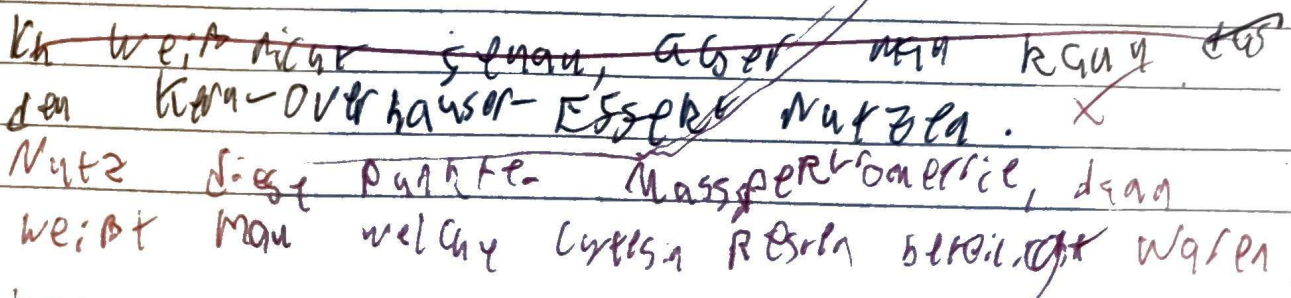 Ich weiß nicht genau, aber man kann das
den Kern-Overhauser-Effekt Nutzen.
Nutz diese punkte Massspektrometrie, dann
weißt man welche Cystein Resten beteiligt waren